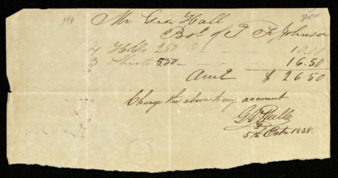 Mr Geo Hall
Bot of T Johnson
4 250 10.00
3 Shirts 5.50 16.50
Amt $ 26.50
Charge the above to my account
5th Oct 1838